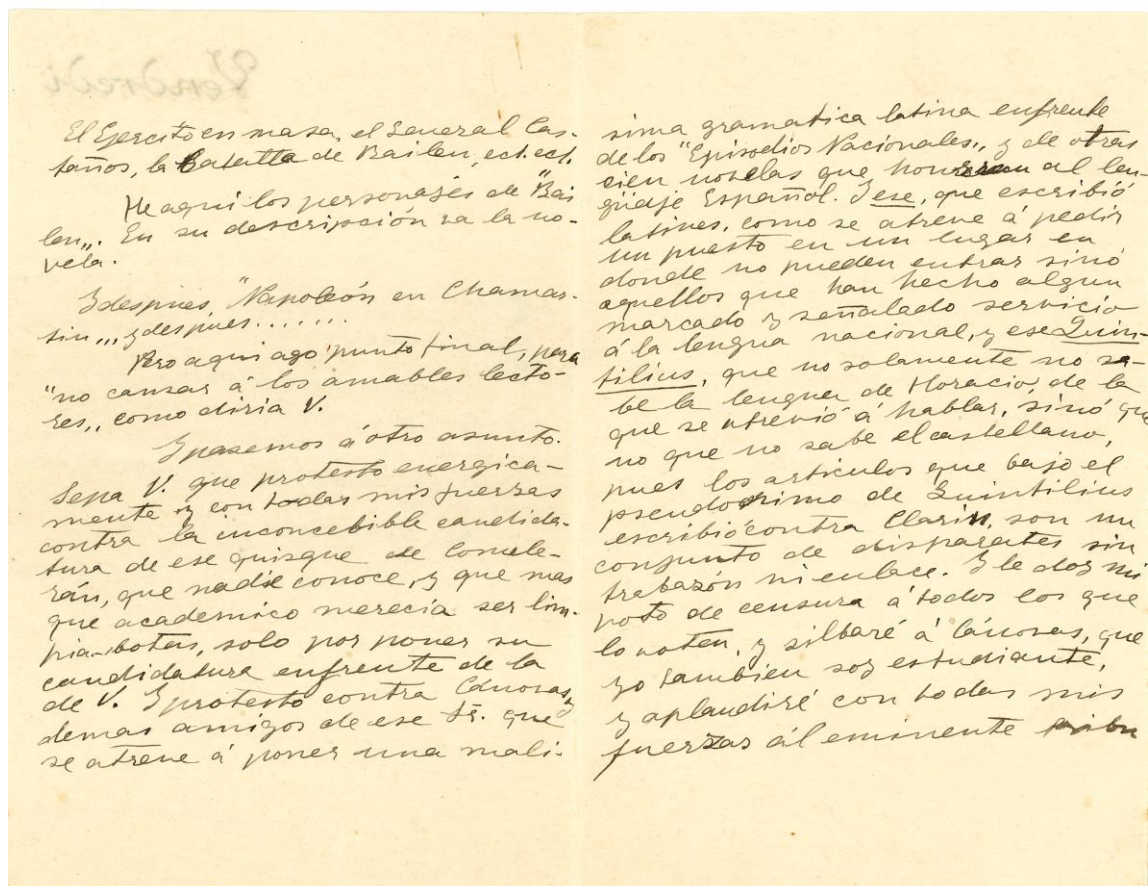 Vendredi
El Ejercito en masa, el General Cas-
taños, la Batalla de Bailen, ect. ect.
He aqui los personajes de "Bai
len„. En su descripción va la no-
vela.
Y despues, "Napoleón en Chamar-
tin„, y despues.......
Pero aqui ago punto final, para
"no cansar á los amables lecto-
res„, como diria V.
Y pasemos á otro asunto.
Sepa V. que protesto energica-
mente y con todas mis fuerzas
contra la inconcebible candida-
tura de ese quisque de Comele-
rán, que nadie conoce, y que mas
que academico merecia ser lim-
pia-botas, solo por poner su
candidatura enfrente de la
de V. Y protesto contra Cánovas y
demas amigos de ese Sr. que
se atreve á poner una mali-
sima gramatica latina enfrente
de los "Episodios Nacionales„ y de otras
cien novelas que honran al len-
guaje Español. Y ese, que escribió
latines, como se atreve á pedir
un puesto en un lugar en
donde no pueden entrar sinó
aquellos que han hecho algun
marcado y señalado servicio
á la lengua nacional, y ese Quin-
tilius, que no solamente no sa-
be la lengua de Horacio, de la
que se atrevió á hablar, sinó que
no que no sabe el castellano,
pues los articulos que bajo el
pseudonimo de Quintilius
escribió contra Clarin, son un
conjunto de disparates sin
trabazón ni enlace. Y le doy mi
voto de censura á todos los que
lo voten, y silbaré á Cánovas, que
yo tambien soy estudiante,
y aplaudiré con todas mis
fuerzas ál eminente